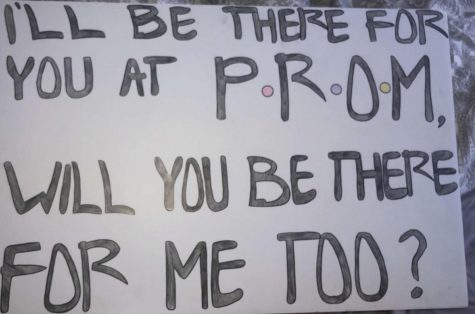 I'LL BE THERE FOR
YOU AT P•R•O•M,
WILL YOU BE THERE
FOR ME TOO?